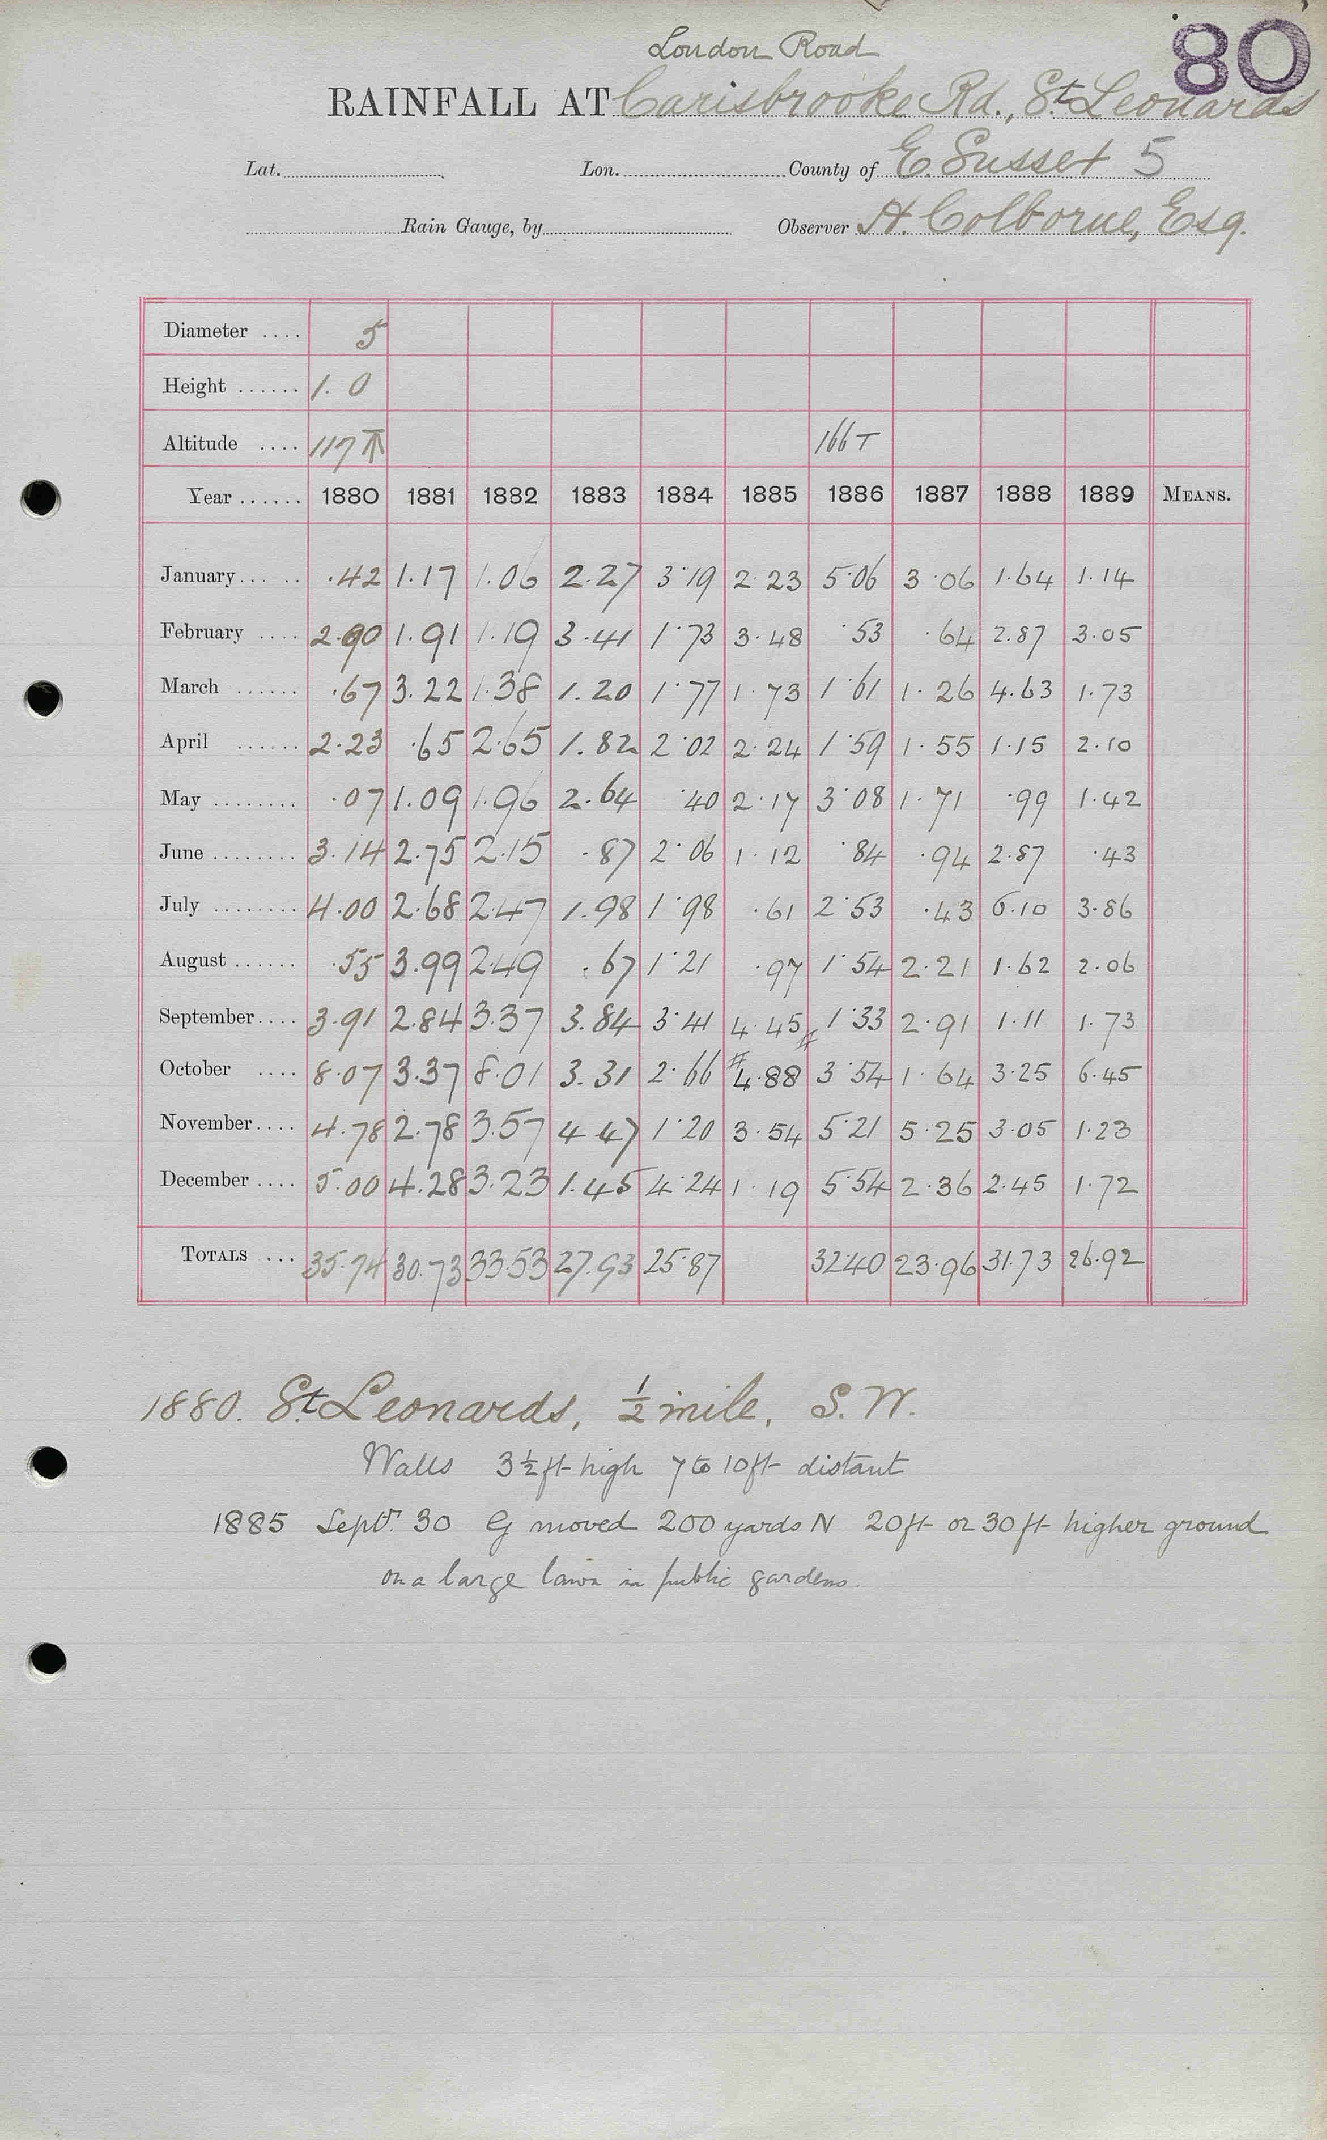 80
London Road
RAINFALL AT Carisbrooke Rd., St Leonards
Lat. Lon. County of E. Sussex 5
Rain Gauge, by Observer H. Colborne, Esq.
Diameter .... 5
Height ...... 1. 0
Altitude .... 117 ⊼ 166 T
Year ...... 1880 1881 1882 1883 1884 1885 1886 1887 1888 1889 MEANS.
January... .. .42 1.17 1.06 2.27 3.19 2.23 5.06 3.06 1.64 1.14
February .... 2.90 1.91 1.19 3.41 1.73 3.48 .53 .64 2.87 3.05
March ...... .67 3.22 1.38 1.20 1.77 1.73 1.61 1.26 4.63 1.73
April ...... 2.23 .65 2.65 1.82 2.02 2.24 1.59 1.55 1.15 2.10
May ........ .07 1.09 1.96 2.64 .40 2.17 3.08 1.71 .99 1.42
June ........ 3.14 2.75 2.15 .87 2.06 1.12 .84 .94 2.87 .43
July ........ 4.00 2.68 2.47 1.98 1.98 .61 2.53 .43 6.10 3.86
August ...... .55 3.99 2.49 .67 1.21 .97 1.54 2.21 1.62 2.06
September.... 3.91 2.84 3.37 3.84 3.41 4.45 # 1.33 2.91 1.11 1.73
October .... 8.07 3.37 8.01 3.31 2.66 # 4.88 3.54 1.64 3.25 6.45
November.... 4.78 2.78 3.57 4.47 1.20 3.54 5.21 5.25 3.05 1.23
December .... 5.00 4.28 3.23 1.45 4.24 1.19 5.54 2.36 2.45 1.72
TOTALS ... 35.74 30.73 33.53 27.93 25.87 32.40 23.96 31.73 26.92
1880. St Leonards, ½ mile, S.W.
Walls 3½ ft high 7 to 10 ft distant
1885 Septr 30 G moved 200 yards N 20 ft or 30 ft higher ground
on a large lawn in public gardens.